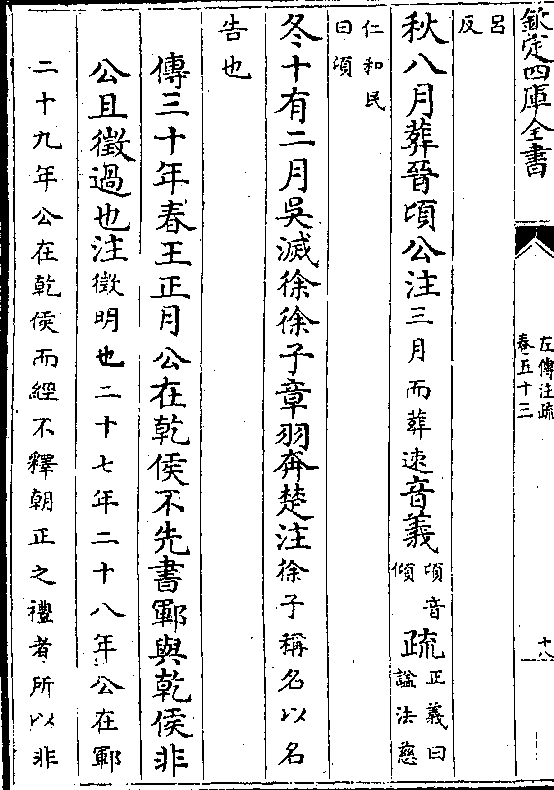 欽定四庫全書
左傳注疏
卷五十三
十八
呂
反
秋八月葬晉頃公注三月而葬速音義頃音傾疏正義曰諡法慈
仁和民
曰頃
冬十有二月吳滅徐徐子章羽奔楚注徐子稱名以名
告也
傳三十年春王正月公在乾侯不先書鄆與乾侯非
公且徵過也注徵明也二十七年二十八年公在鄆
二十九年公在乾侯而經不釋朝正之禮者所以非